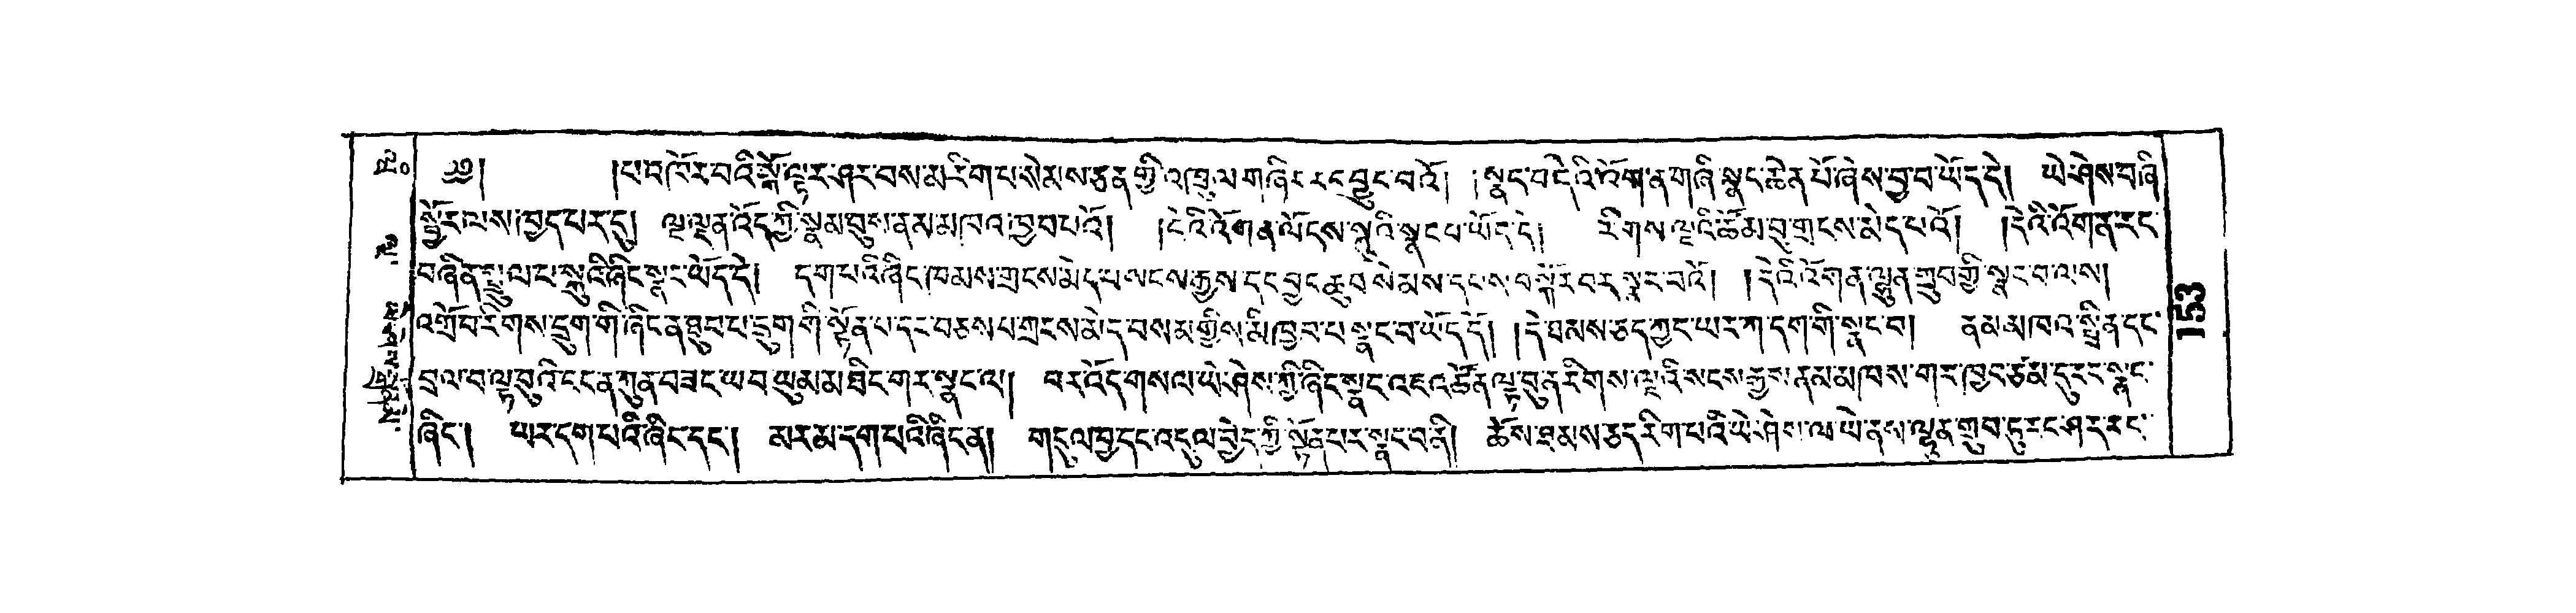 ༄༅། །པ་འཁོར་བའི་སྒོ་ལྟར་ཤར་བས་མ་རིག་པ་སེམས་ཅན་གྱི་འཁྲུལ་གཞིར་རང་བྱུང་བའོ། །སྣང་བ་དེའི་འོག་ན་གཞི་སྣང་ཆེན་པོ་ཞེས་བྱ་བ་ཡོད་དེ། ཡེ་ཤེས་བཞི
སྦྱོར་ལས་ཁྱད་པར་དུ། ལྔ་ལྡན་འོད་ཀྱི་སྣམ་བུས་ནམ་མཁའ་ཁྱབ་པའོ། །དེའི་འོག་ན་ལོངས་སྐུའི་སྣང་བ་ཡོད་དེ། རིགས་ལྔའི་ཚོམ་བུ་གྲངས་མེད་པའོ། །དེའི་འོག་ན་རང་
བཞིན་སྤྲུལ་པ་སྐུའི་ཞིང་སྣང་ཡོད་དེ། དག་པའི་ཞིང་ཁམས་གྲངས་མེད་པ་སངས་རྒྱས་དང་བྱང་ཆུབ་སེམས་དཔས་བསྐོར་བར་སྣང་བའོ། །དེའི་འོག་ན་ལྷུན་གྲུབ་ཀྱི་སྣང་བ་ལས།
འགྲོ་བ་རིགས་དྲུག་གི་ཞིང་ན་ཐུབ་པ་དྲུག་གི་སྟོན་པ་དང་བཅས་པ་གྲངས་མེད་བསམ་གྱིས་མི་ཁྱབ་པ་སྣང་བ་ཡོད་དོ། །དེ་ཐམས་ཅད་ཀྱང་ཡར་ཀ་དག་གི་སྣང་བ། ནམ་མཁའ་སྤྲིན་དང་
བྲལ་བ་ལྟ་བུའི་ངང་ན་ཀུན་བཟང་ཡབ་ཡུམ་མཐིང་གར་སྣང་ལ། བར་འོད་གསལ་ཡེ་ཤེས་ཀྱི་ཞིང་སྣང་འཇའ་ཚོན་ལྟ་བུ་ན་རིགས་ལྔའི་སངས་རྒྱས་ནམ་མཁས་གང་ཁྱད་ཙམ་དུ་རང་སྣང་
ཞིང་། ཡར་དག་པའི་ཞིང་དང་། མར་མ་དག་པའི་ཞིང་ན། གདུལ་བྱ་དང་འདུལ་བྱེད་ཀྱི་སྟོན་པར་སྣང་བ་ནི། ཆོས་ཐམས་ཅད་རིག་པའི་ཡེ་ཤེས་ལ་ཡེ་ནས་ལྷུན་གྲུབ་ཏུ་རང་ཤར་རང་